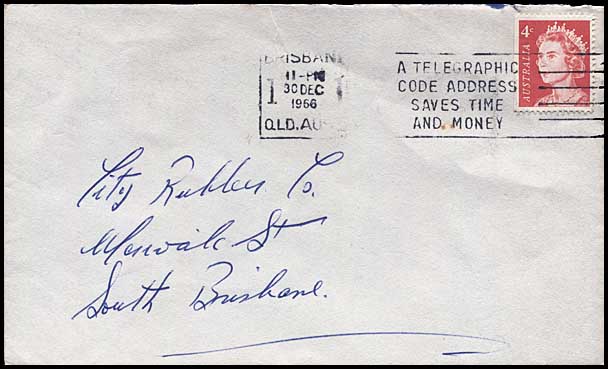 BRISBANE
11-PM
30 DEC
1 1
1966
QLD. AUS
A TELEGRAPHIC
CODE ADDRESS
SAVES TIME
AND MONEY
4c
AUSTRALIA
City Rubber Co.
Merivale St
South Brisbane.